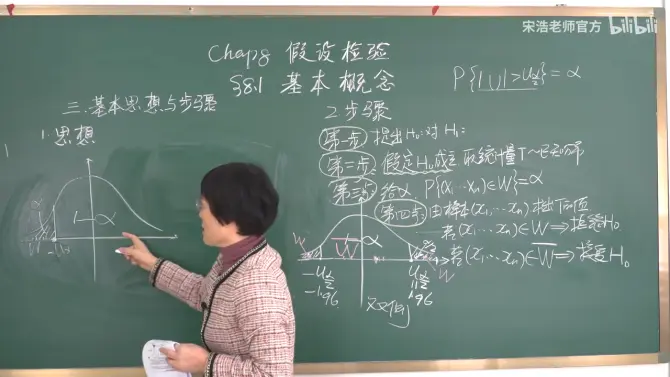 宋浩老师官方 bilibili
Chap8 假设检验
§8.1 基本概念
P{|U|>u_{α/2}}=α
三.基本思想与步骤
1.思想
α
W
1-α
2 步骤
第一步: 提出H₀:对H₁:
第二步: 假定H₀成立 取统计量T~已知分布
第三步: 给α P{(x₁…xₙ)∈W}=α
第四步: 由样本(x₁,…xₙ)
若(x₁,…xₙ)∈W⟹拒绝H₀
若(x₁,…xₙ)∈W̄⟹接受H₀
W
1-α
W
-u_{α/2}
-1.96
u_{α/2}
1.96
双侧